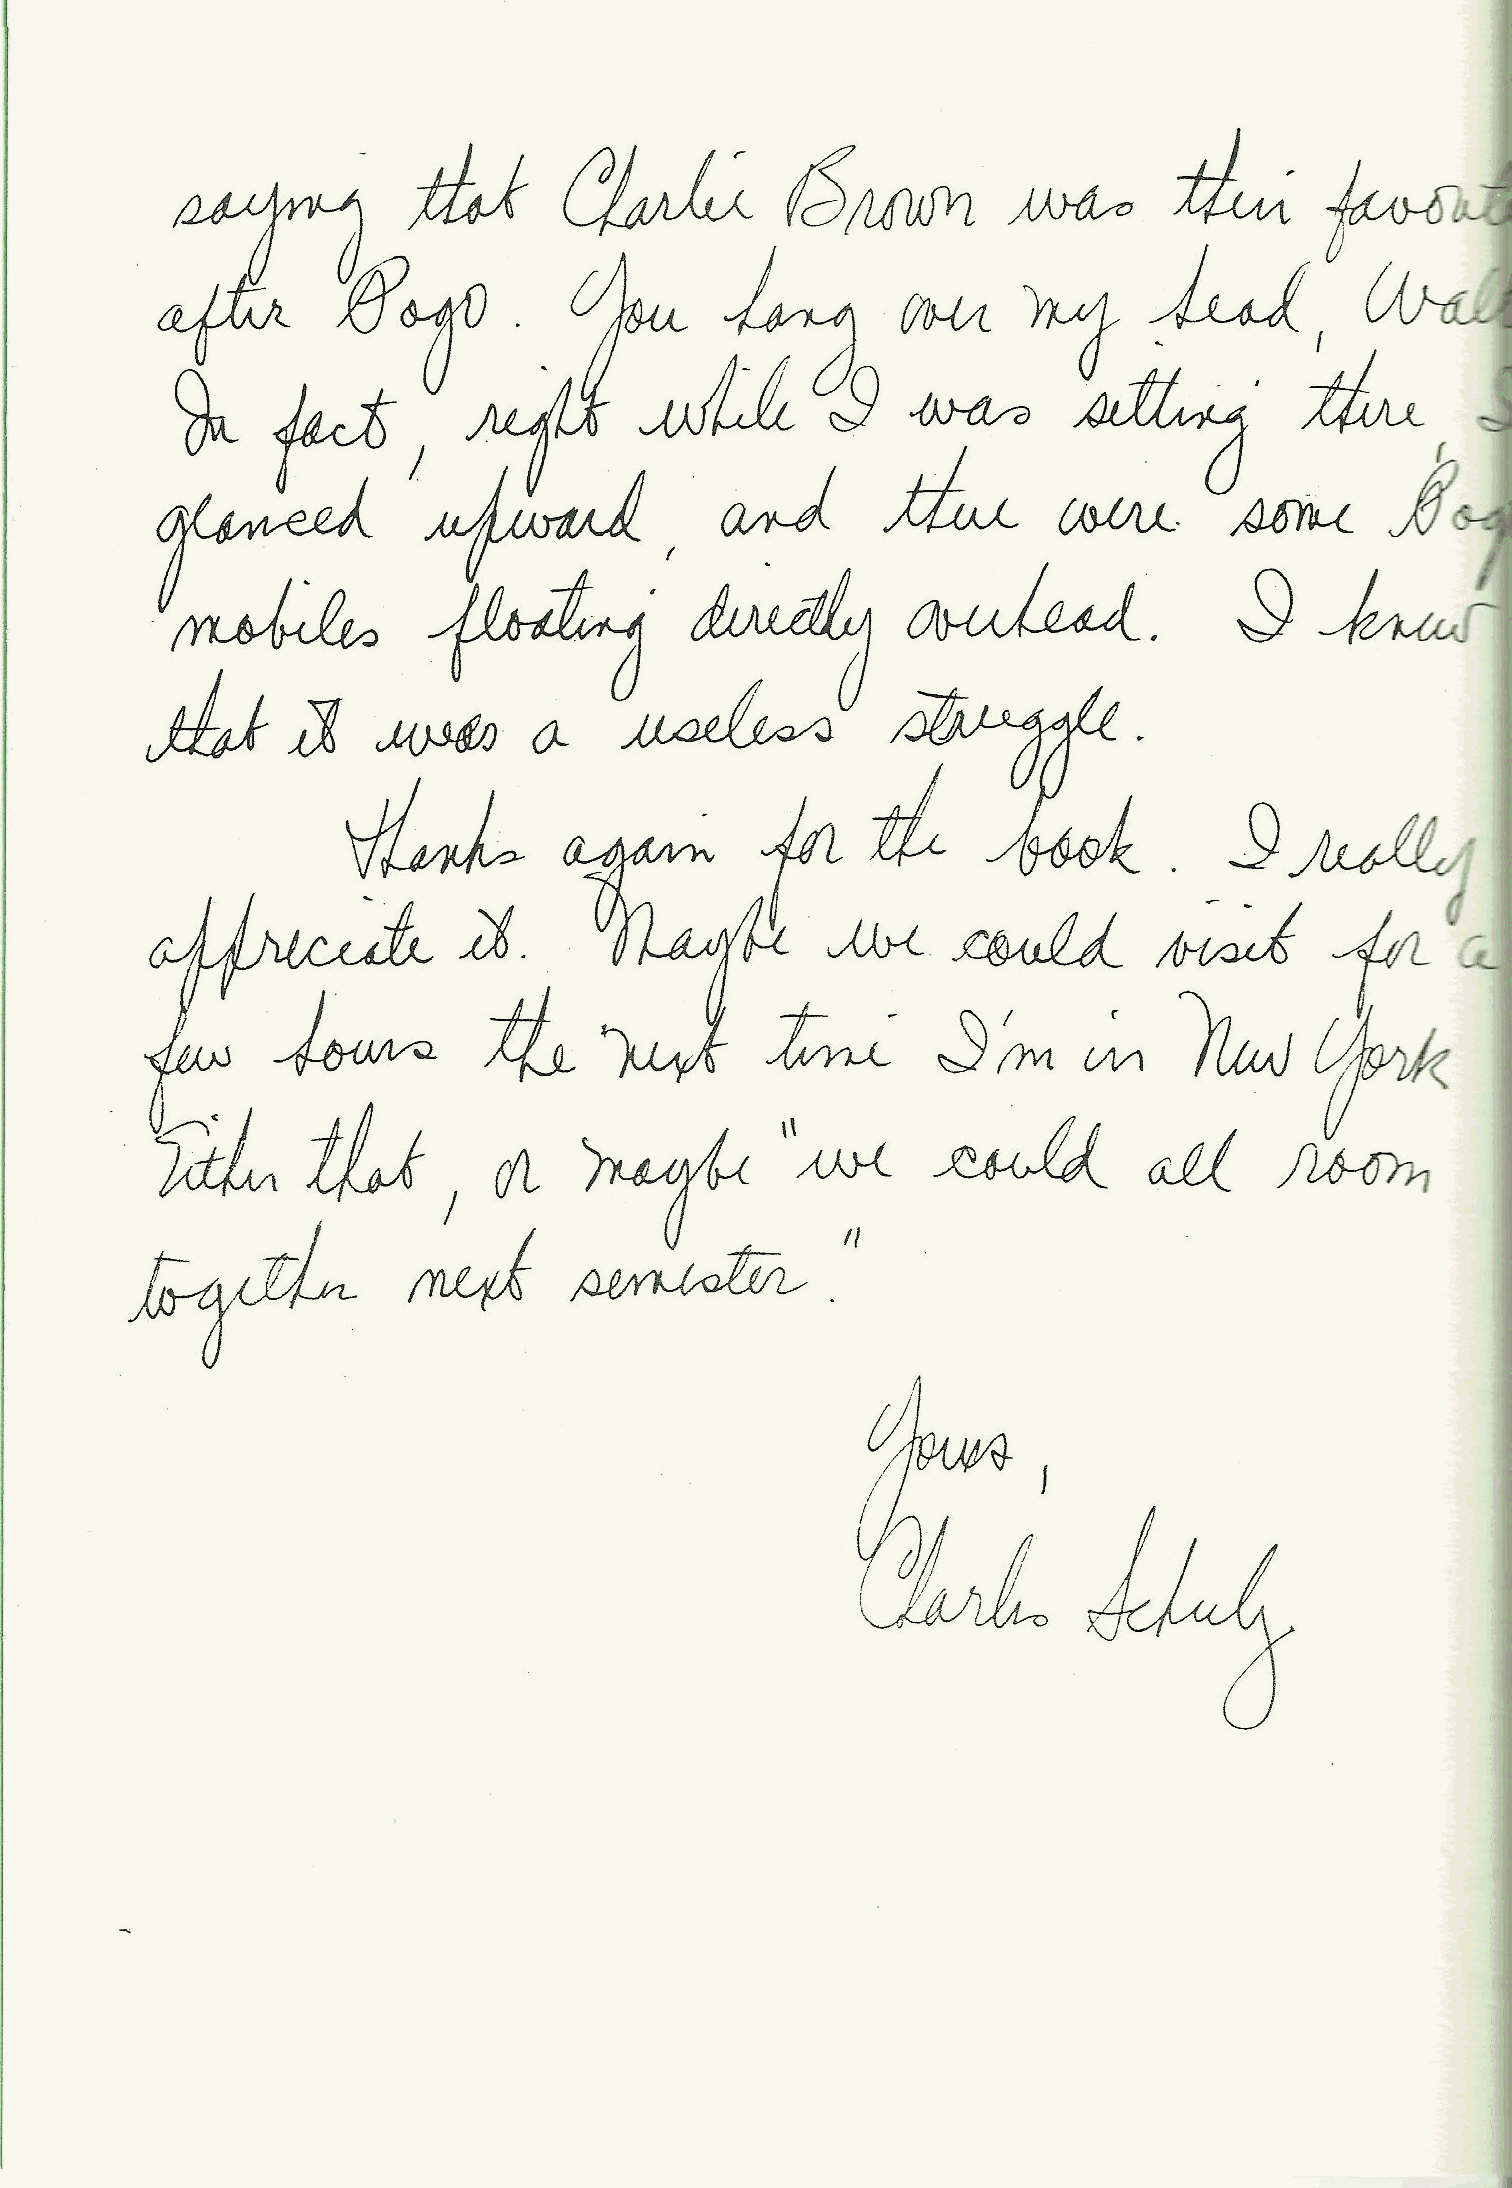 saying that Charlie Brown was their favorit
after Pogo. You hang over my head, Walt
In fact, right while I was sitting there, I
glanced upward, and there were some Pog
mobiles floating directly overhead. I knew
that it was a useless struggle.
Thanks again for the book. I really
appreciate it. Maybe we could visit for a
few hours the next time I'm in New York
Either that, or maybe "we could all room
together next semester."
Yours,
Charles Schulz